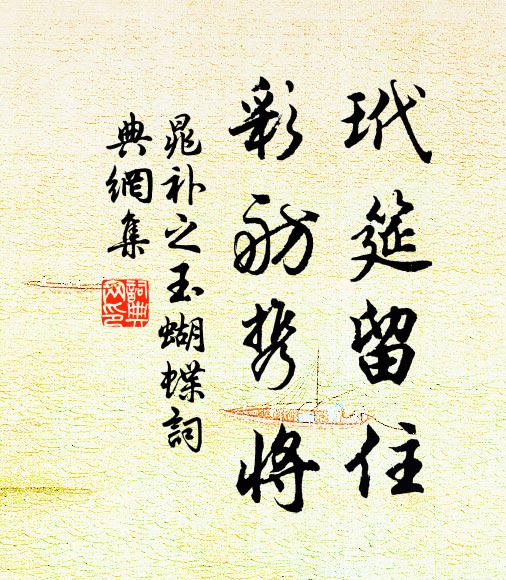 玳筵留住
彩舫携將
晁补之玉蝴蝶詞
典網集
詞典
网印